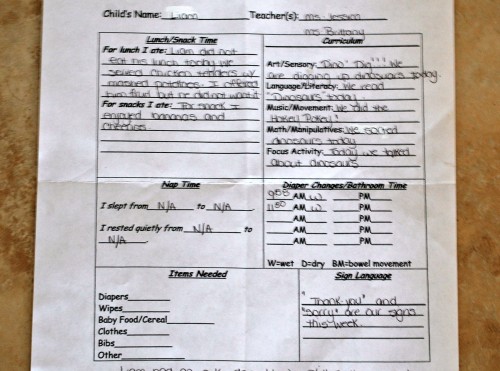 Child's Name: Liam Teacher(s): ms. Jessica
ms. Brittany
Lunch/Snack Time
For lunch I ate: Liam did not
eat his lunch today. We
served chicken tenders w/
mashed potatoes. I offered
him fruit but he did not want it
For snacks I ate: For snack I
enjoyed bananas and
cheerios.
Curriculum
Art/Sensory: "Dino" Dig"!! We
are digging up dinosaurs today.
Language/Literacy: We read
"Dinosaurs" today!
Music/Movement: We did the
Hokey Pokey!
Math/Manipulatives: We sorted
dinosaurs today
Focus Activity: Today we talked
about dinosaurs
Nap Time
I slept from N/A to N/A
I rested quietly from N/A to
N/A
Diaper Changes/Bathroom Time
9:55 AM w PM
11:50 AM w PM
AM PM
AM PM
AM PM
W=wet D=dry BM=bowel movement
Items Needed
Diapers
Wipes
Baby Food/Cereal
Clothes
Bibs
Other
Sign Language
"Thank you" and
"sorry" are our signs
this week.